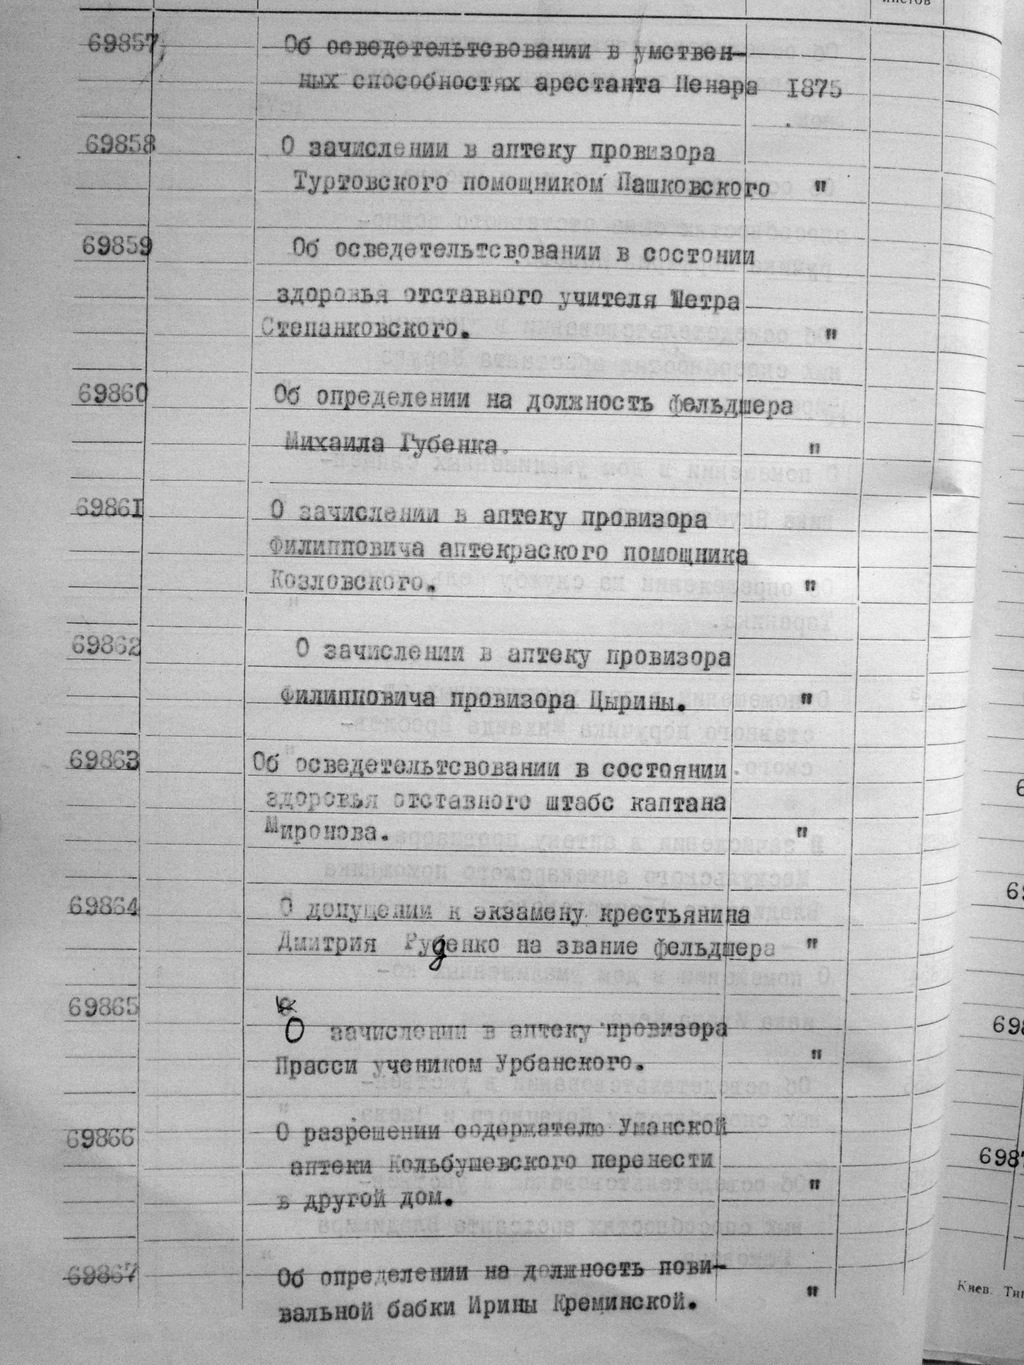 листов
69857 Об осведетельтсвовании в умствен-
ных способностях арестанта Пенара 1875
69858 О зачислении в аптеку провизора
Туртовского помощником Пашковского "
69859 Об осведетельтсвовании в состонии
здоровья отставного учителя Петра
Степанковского. "
69860 Об определении на должность фельдшера
Михаила Губенка. "
69861 О зачислении в аптеку провизора
Филипповича аптекраского помощника
Козловского. "
69862 О зачислении в аптеку провизора
Филипповича провизора Цырины. "
69863 Об осведетельтсвовании в состоянии
здоровья отставного штабс каптана
Миронова. "
69864 О допущении к экзамену крестьянина
Дмитрия Руденко на звание фельдшера "
69865
О зачислении в аптеку провизора
Прасси учеником Урбанского. "
69866 О разрешении содержателю Уманской
аптеки Кольбушевского перенести
в другой дом. "
69867 Об определении на должность пови-
вальной бабки Ирины Креминской. "
Киев.